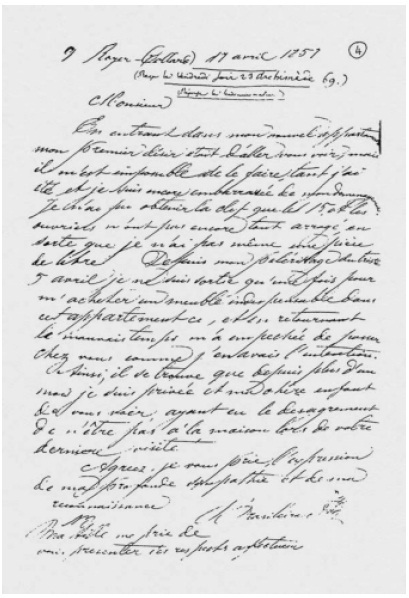 9 Royer-Collard, 17 avril 1857
④
(Reçu le Vendredi soir 23 Archimède 69.)
Monsieur
En entrant dans mon nouvel appartem
mon premier désir était d'aller vous voir; mais
il m'est impossible de le faire, tant j'ai
été et je suis encore embarrassée de
Je n'ai pu obtenir la clef que le 15, et les
ouvriers n'ont pas encore tout arrangé, en
sorte que je n'ai pas même une pièce
de libre. Depuis mon pélérinage du
5 avril je ne suis sortie qu'une fois pour
m'acheter un meuble indispensable dans
cet appartement ci, et en retournant
le mauvais temps m'a empechée de passer
chez vous comme j'en avais l'intention.
Ainsi, il se trouve que depuis plus d'un
mois je suis privée et ma chère enfant
de vous voir, ayant eu le desagrement
de n'être pas à la maison lors de votre
derniere visite.
Agréez, je vous prie l'expression
de ma profonde sympathie et de ma
reconnaissance
Brasileira
Ma fille me prie de
vous presenter ses respects affectueux